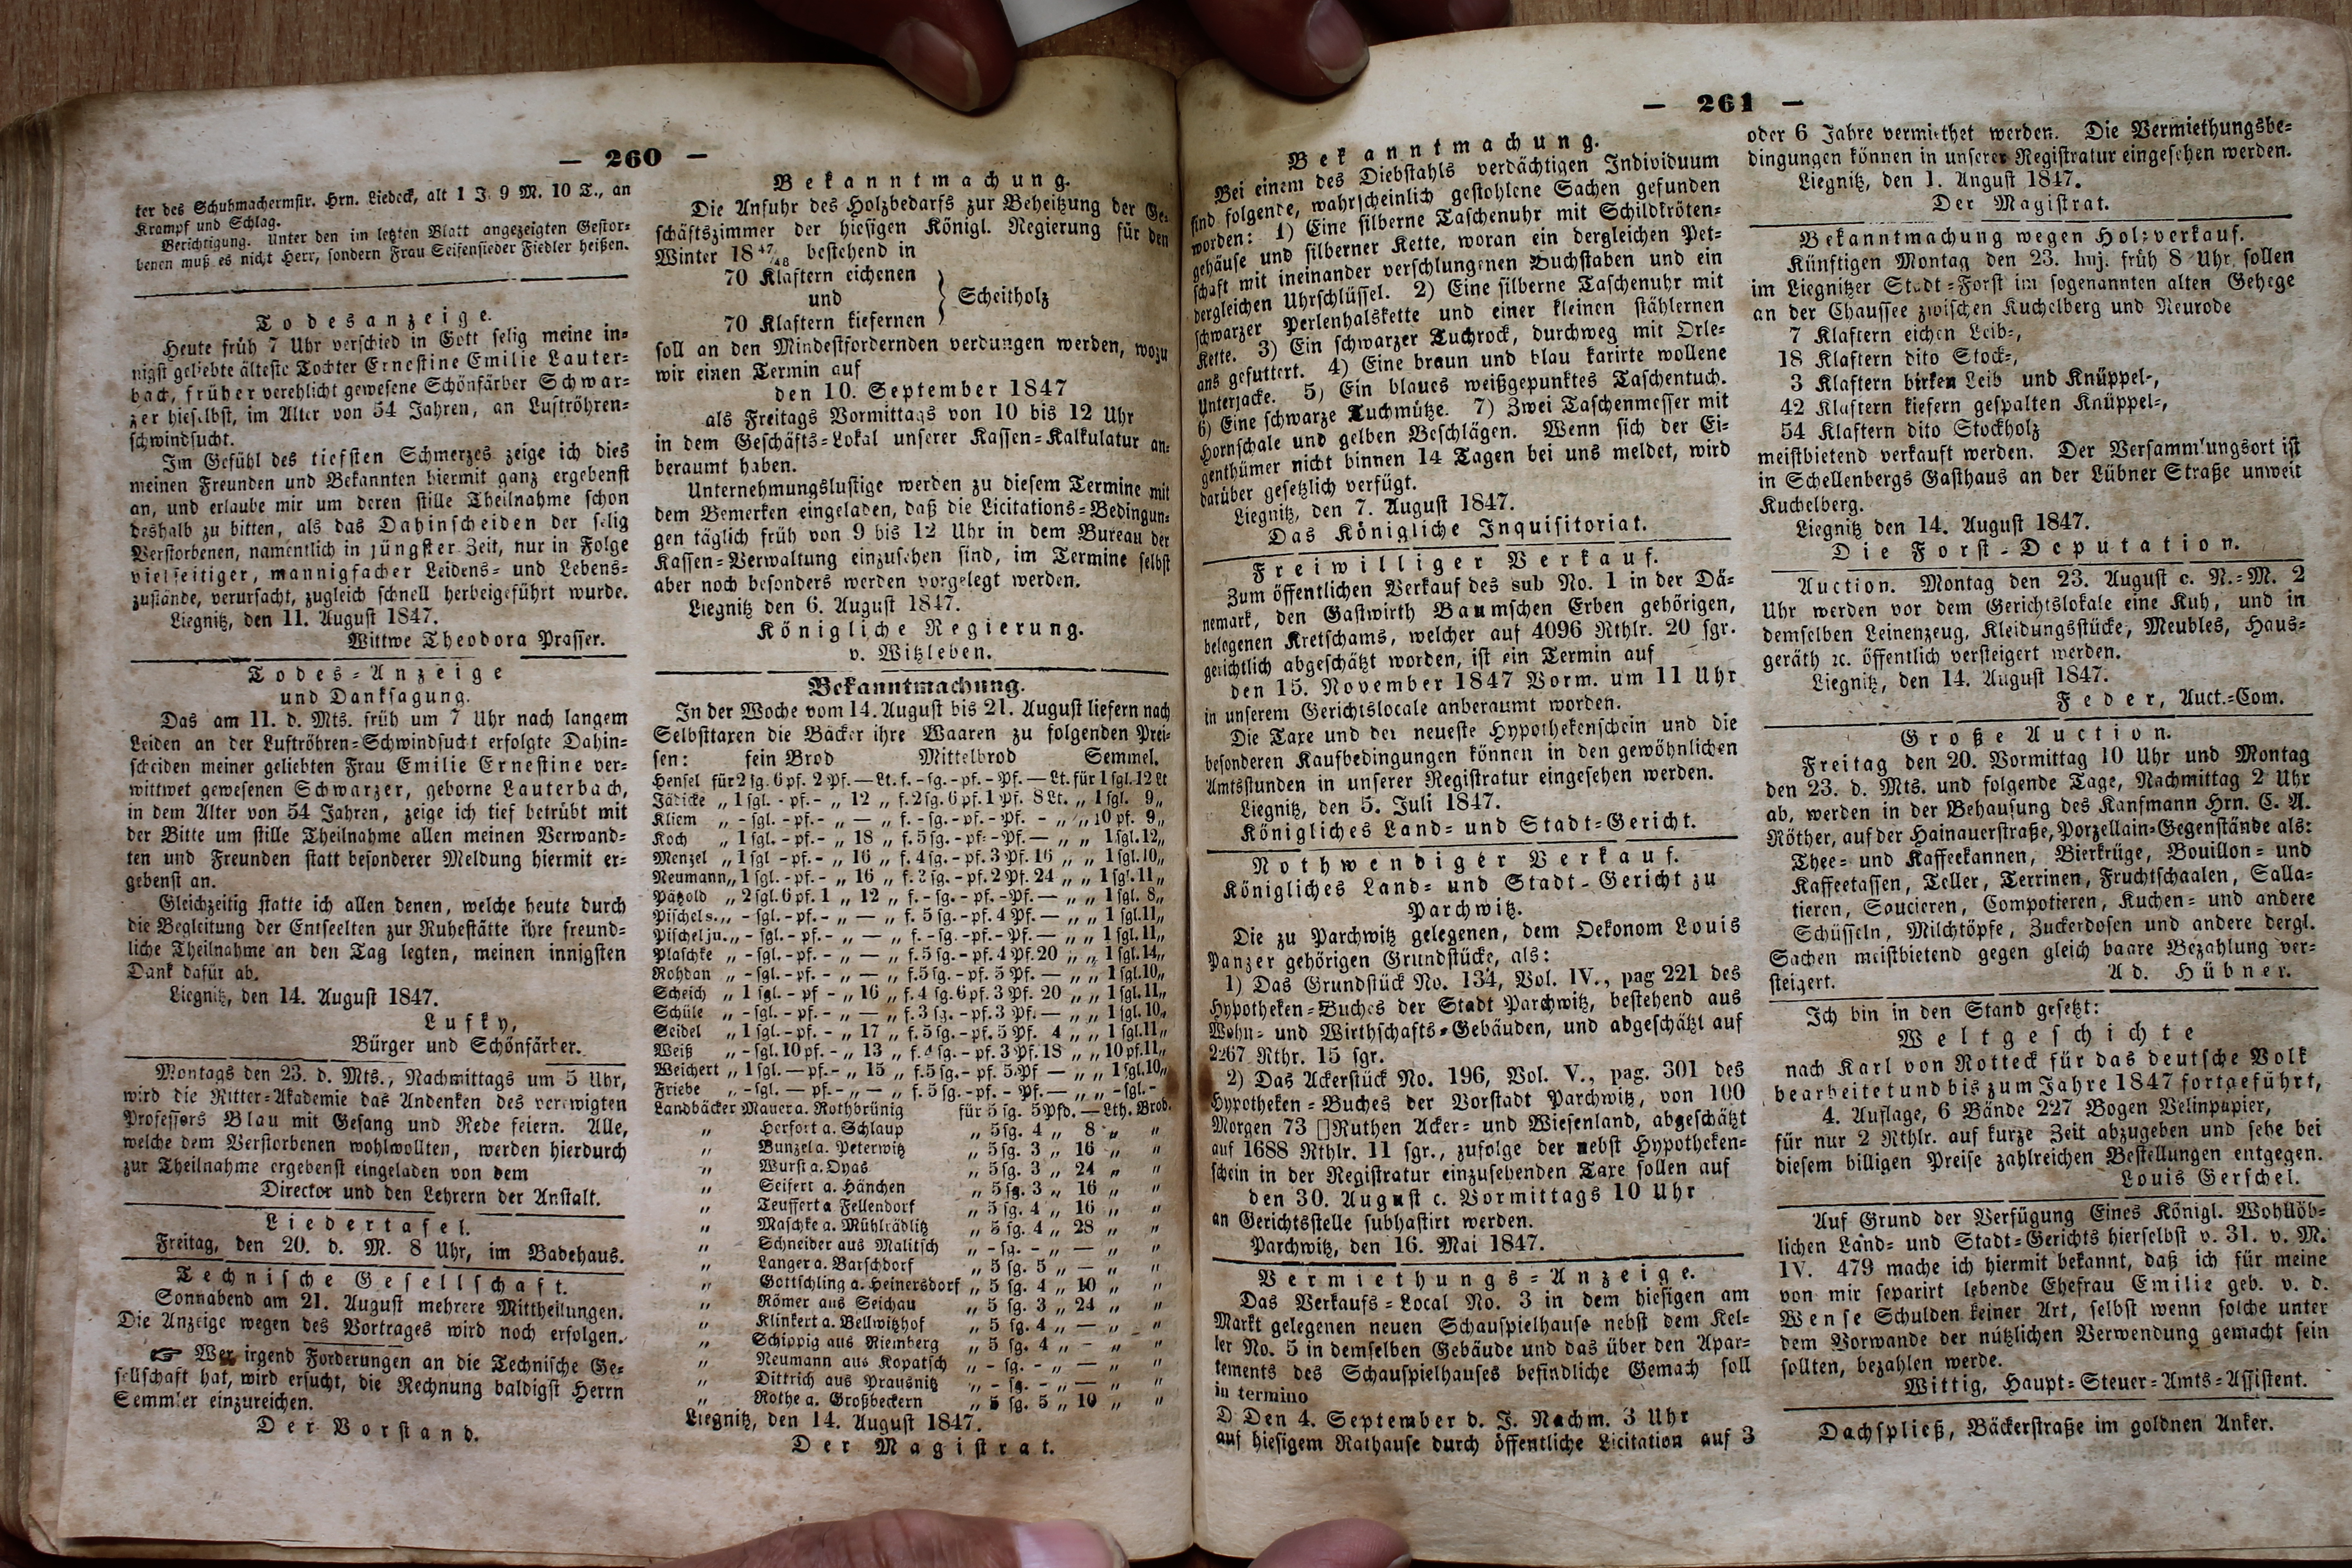 — 260 —
ter des Schuhmachermstr. Hrn. Liedeck, alt 1 J. 9 M. 10 T., an
Krampf und Schlag.
Berichtigung. Unter den im letzten Blatt angezeigten Gestor-
benen muß es nicht Herr, sondern Frau Seifensieder Fiedler heißen.
Todesanzeige.
Heute früh 7 Uhr verschied in Gott selig meine in-
nigst geliebte älteste Tochter Ernestine Emilie Lauter-
bach, früher verehlicht gewesene Schönfärber Schwar-
zer hieselbst, im Alter von 54 Jahren, an Luftröhren-
schwindsucht.
Im Gefühl des tiefsten Schmerzes zeige ich dies
meinen Freunden und Bekannten hiermit ganz ergebenst
an, und erlaube mir um deren stille Theilnahme schon
deshalb zu bitten, als das Dahinscheiden der selig
Verstorbenen, namentlich in jüngster Zeit, nur in Folge
vielseitiger, mannigfacher Leidens- und Lebens-
zustände, verursacht, zugleich schnell herbeigeführt wurde.
Liegnitz, den 11. August 1847.
Wittwe Theodora Prasser.
Todes-Anzeige
und Danksagung.
Das am 11. d. Mts. früh um 7 Uhr nach langem
Leiden an der Luftröhren-Schwindsucht erfolgte Dahin-
scheiden meiner geliebten Frau Emilie Ernestine ver-
wittwet gewesenen Schwarzer, geborne Lauterbach,
in dem Alter von 54 Jahren, zeige ich tief betrübt mit
der Bitte um stille Theilnahme allen meinen Verwand-
ten und Freunden statt besonderer Meldung hiermit er-
gebenst an.
Gleichzeitig statte ich allen denen, welche heute durch
die Begleitung der Entseelten zur Ruhestätte ihre freund-
liche Theilnahme an den Tag legten, meinen innigsten
Dank dafür ab.
Liegnitz, den 14. August 1847.
Lufky,
Bürger und Schönfärber.
Montags den 23. d. Mts., Nachmittags um 5 Uhr,
wird die Ritter-Akademie das Andenken des verewigten
Professors Blau mit Gesang und Rede feiern. Alle,
welche dem Verstorbenen wohlwollten, werden hierdurch
zur Theilnahme ergebenst eingeladen von dem
Director und den Lehrern der Anstalt.
Liedertafel.
Freitag, den 20. d. M. 8 Uhr, im Badehaus.
Technische Gesellschaft.
Sonnabend am 21. August mehrere Mittheilungen.
Die Anzeige wegen des Vortrages wird noch erfolgen.
☞ Wer irgend Forderungen an die Technische Ge-
sellschaft hat, wird ersucht, die Rechnung baldigst Herrn
Semmler einzureichen.
Der Vorstand.
Bekanntmachung.
Die Anfuhr des Holzbedarfs zur Beheitzung der Ge-
schäftszimmer der hiesigen Königl. Regierung für den
Winter 18 47/48 bestehend in
70 Klaftern eichenen
und } Scheitholz
70 Klaftern kiefernen
soll an den Mindestfordernden verdungen werden, wozu
wir einen Termin auf
den 10. September 1847
als Freitags Vormittags von 10 bis 12 Uhr
in dem Geschäfts-Lokal unserer Kassen-Kalkulatur an-
beraumt haben.
Unternehmungslustige werden zu diesem Termine mit
dem Bemerken eingeladen, daß die Licitations-Bedingun-
gen täglich früh von 9 bis 12 Uhr in dem Bureau der
Kassen-Verwaltung einzusehen sind, im Termine selbst
aber noch besonders werden vorgelegt werden.
Liegnitz den 6. August 1847.
Königliche Regierung.
v. Witzleben.
Bekanntmachung.
In der Woche vom 14. August bis 21. August liefern nach
Selbsttaxen die Bäcker ihre Waaren zu folgenden Prei-
sen: fein Brod Mittelbrod Semmel.
Hensel für 2 sg. 6 pf. 2 Pf. — Lt. f. - sg. - pf. - Pf. — Lt. für 1 sgl. 12 Lt
Jädicke „ 1 sgl. - pf. - „ 12 „ f. 2 sg. 6 pf. 1 Pf. 8 Lt. „ 1 sgl. 9 „
Kliem „ - sgl. - pf. - „ — „ f. - sg. - pf. - Pf. - „ „ 10 pf. 9 „
Koch „ 1 sgl. - pf. - „ 18 „ f. 5 sg. - pf. - Pf. — „ „ 1 sgl. 12 „
Menzel „ 1 sgl - pf. - „ 16 „ f. 4 sg. - pf. 3 Pf. 16 „ „ 1 sgl. 10 „
Neumann „ 1 sgl. - pf. - „ 16 „ f. 3 sg. - pf. 2 Pf. 24 „ „ 1 sgl. 11 „
Pätzold „ 2 sgl. 6 pf. 1 „ 12 „ f. - sg. - pf. - Pf. — „ „ 1 sgl. 8 „
Pischel s. „ - sgl. - pf. - „ — „ f. 5 sg. - pf. 4 Pf. — „ „ 1 sgl. 11 „
Pischel ju. „ - sgl. - pf. - „ — „ f. - sg. - pf. - Pf. — „ „ 1 sgl. 11 „
Plaschke „ - sgl. - pf. - „ — „ f. 5 sg. - pf. 4 Pf. 20 „ „ 1 sgl. 14 „
Rohdan „ - sgl. - pf. - „ — „ f. 5 sg. - pf. 5 Pf. — „ „ 1 sgl. 10 „
Scheich „ 1 sgl. - pf - „ 16 „ f. 4 sg. 6 pf. 3 Pf. 20 „ „ 1 sgl. 11 „
Schüle „ - sgl. - pf. - „ — „ f. 3 sg. - pf. 3 Pf. — „ „ 1 sgl. 10 „
Seidel „ 1 sgl. - pf. - „ 17 „ f. 5 sg. - pf. 5 Pf. 4 „ „ 1 sgl. 11 „
Weiß „ - sgl. 10 pf. - „ 13 „ f. 4 sg. - pf. 3 Pf. 18 „ „ 10 pf. 11 „
Weichert „ 1 sgl. — pf. - „ 15 „ f. 5 sg. - pf. 5 Pf — „ „ 1 sgl. 10 „
Friebe „ - sgl. — pf. - „ - „ f. 5 sg. - pf. - Pf. — „ „ - sgl. -
Landbäcker Mauer a. Rothbrünig für 5 sg. 5 Pfd. — Lth. Brod.
„ Herfort a. Schlaup „ 5 sg. 4 „ 8 „ „
„ Bunzel a. Peterwitz „ 5 sg. 3 „ 16 „ „
„ Wurst a. Dyas „ 5 sg. 3 „ 24 „ „
„ Seifert a. Hänchen „ 5 sg. 3 „ 16 „ „
„ Teuffert a Fellendorf „ 5 sg. 4 „ 16 „ „
„ Maschke a. Mühlrädlitz „ 5 sg. 4 „ 28 „ „
„ Schneider aus Malitsch „ - sg. - „ — „ „
„ Langer a. Barschdorf „ 5 sg. 5 „ — „ „
„ Gottschling a. Heinersdorf „ 5 sg. 4 „ 10 „ „
„ Römer aus Seichau „ 5 sg. 3 „ 24 „ „
„ Klinkert a. Bellwitzhof „ 5 sg. 4 „ — „ „
„ Schippig aus Niemberg „ 5 sg. 4 „ - „ „
„ Neumann aus Kopatsch „ - sg. - „ — „ „
„ Dittrich aus Prausnitz „ - sg. - „ — „ „
„ Rothe a. Großbeckern „ 5 sg. 5 „ 10 „ „
Liegnitz, den 14. August 1847.
Der Magistrat.
— 261 —
Bekanntmachung.
Bei einem des Diebstahls verdächtigen Individuum
sind folgende, wahrscheinlich gestohlene Sachen gefunden
worden: 1) Eine silberne Taschenuhr mit Schildkröten-
gehäuse und silberner Kette, woran ein dergleichen Pet-
schaft mit ineinander verschlungenen Buchstaben und ein
dergleichen Uhrschlüssel. 2) Eine silberne Taschenuhr mit
schwarzer Perlenhalskette und einer kleinen stählernen
Kette. 3) Ein schwarzer Tuchrock, durchweg mit Orle-
ans gefuttert. 4) Eine braun und blau karirte wollene
Unterjacke. 5) Ein blaues weißgepunktes Taschentuch.
6) Eine schwarze Tuchmütze. 7) Zwei Taschenmesser mit
Hornschale und gelben Beschlägen. Wenn sich der Ei-
genthümer nicht binnen 14 Tagen bei uns meldet, wird
darüber gesetzlich verfügt.
Liegnitz, den 7. August 1847.
Das Königliche Inquisitoriat.
Freiwilliger Verkauf.
Zum öffentlichen Verkauf des sub No. 1 in der Dä-
nemark, den Gastwirth Baumschen Erben gehörigen,
belegenen Kretschams, welcher auf 4096 Rthlr. 20 sgr.
gerichtlich abgeschätzt worden, ist ein Termin auf
den 15. November 1847 Vorm. um 11 Uhr
in unserem Gerichtslocale anberaumt worden.
Die Taxe und der neueste Hypothekenschein und die
besonderen Kaufbedingungen können in den gewöhnlichen
Amtsstunden in unserer Registratur eingesehen werden.
Liegnitz, den 5. Juli 1847.
Königliches Land- und Stadt-Gericht.
Nothwendiger Verkauf.
Königliches Land- und Stadt-Gericht zu
Parchwitz.
Die zu Parchwitz gelegenen, dem Oekonom Louis
Panzer gehörigen Grundstücke, als:
1) Das Grundstück No. 134, Vol. IV., pag 221 des
Hypotheken-Buches der Stadt Parchwitz, bestehend aus
Wohn- und Wirthschafts-Gebäuden, und abgeschätzt auf
2267 Rthr. 15 sgr.
2) Das Ackerstück No. 196, Vol. V., pag. 301 des
Hypotheken-Buches der Vorstadt Parchwitz, von 100
Morgen 73 []Ruthen Acker- und Wiesenland, abgeschätzt
auf 1688 Rthlr. 11 sgr., zufolge der nebst Hypotheken-
schein in der Registratur einzusehenden Taxe sollen auf
den 30. August c. Vormittags 10 Uhr
an Gerichtsstelle subhastirt werden.
Parchwitz, den 16. Mai 1847.
Vermiethungs-Anzeige.
Das Verkaufs-Local No. 3 in dem hiesigen am
Markt gelegenen neuen Schauspielhause nebst dem Kel-
ler No. 5 in demselben Gebäude und das über den Apar-
tements des Schauspielhauses befindliche Gemach soll
in termino
D Den 4. September d. J. Nachm. 3 Uhr
auf hiesigem Rathause durch öffentliche Licitation auf 3
oder 6 Jahre vermiethet werden. Die Vermiethungsbe-
dingungen können in unserer Registratur eingesehen werden.
Liegnitz, den 1. August 1847.
Der Magistrat.
Bekanntmachung wegen Holzverkauf.
Künftigen Montag den 23. huj. früh 8 Uhr sollen
im Liegnitzer Stadt-Forst im sogenannten alten Gehege
an der Chaussee zwischen Kuchelberg und Neurode
7 Klaftern eichen Leib-,
18 Klaftern dito Stock-,
3 Klaftern birken Leib und Knüppel-,
42 Klaftern kiefern gespalten Knüppel-,
54 Klaftern dito Stockholz
meistbietend verkauft werden. Der Versammlungsort ist
in Schellenbergs Gasthaus an der Lübner Straße unweit
Kuchelberg.
Liegnitz den 14. August 1847.
Die Forst-Deputation.
Auction. Montag den 23. August c. N.-M. 2
Uhr werden vor dem Gerichtslokale eine Kuh, und in
demselben Leinenzeug, Kleidungsstücke, Meubles, Haus-
geräth ꝛc. öffentlich versteigert werden.
Liegnitz, den 14. August 1847.
Feder, Auct.-Com.
Große Auction.
Freitag den 20. Vormittag 10 Uhr und Montag
den 23. d. Mts. und folgende Tage, Nachmittag 2 Uhr
ab, werden in der Behausung des Kanfmann Hrn. C. A.
Röther, auf der Hainauerstraße, Porzellain-Gegenstände als:
Thee- und Kaffeekannen, Bierkrüge, Bouillon- und
Kaffeetassen, Teller, Terrinen, Fruchtschaalen, Salla-
tieren, Soucieren, Compotieren, Kuchen- und andere
Schüsseln, Milchtöpfe, Zuckerdosen und andere dergl.
Sachen meistbietend gegen gleich baare Bezahlung ver-
steigert. Ad. Hübner.
Ich bin in den Stand gesetzt:
Weltgeschichte
nach Karl von Rotteck für das deutsche Volk
bearbeitet und bis zum Jahre 1847 fortgeführt,
4. Auflage, 6 Bände 227 Bogen Velinpapier,
für nur 2 Rthlr. auf kurze Zeit abzugeben und sehe bei
diesem billigen Preise zahlreichen Bestellungen entgegen.
Louis Gerschel.
Auf Grund der Verfügung Eines Königl. Wohllöb-
lichen Land- und Stadt-Gerichts hierselbst v. 31. v. M.
IV. 479 mache ich hiermit bekannt, daß ich für meine
von mir separirt lebende Ehefrau Emilie geb. v. d.
Wense Schulden keiner Art, selbst wenn solche unter
dem Vorwande der nützlichen Verwendung gemacht sein
sollten, bezahlen werde.
Wittig, Haupt-Steuer-Amts-Assistent.
Dachspließ, Bäckerstraße im goldnen Anker.